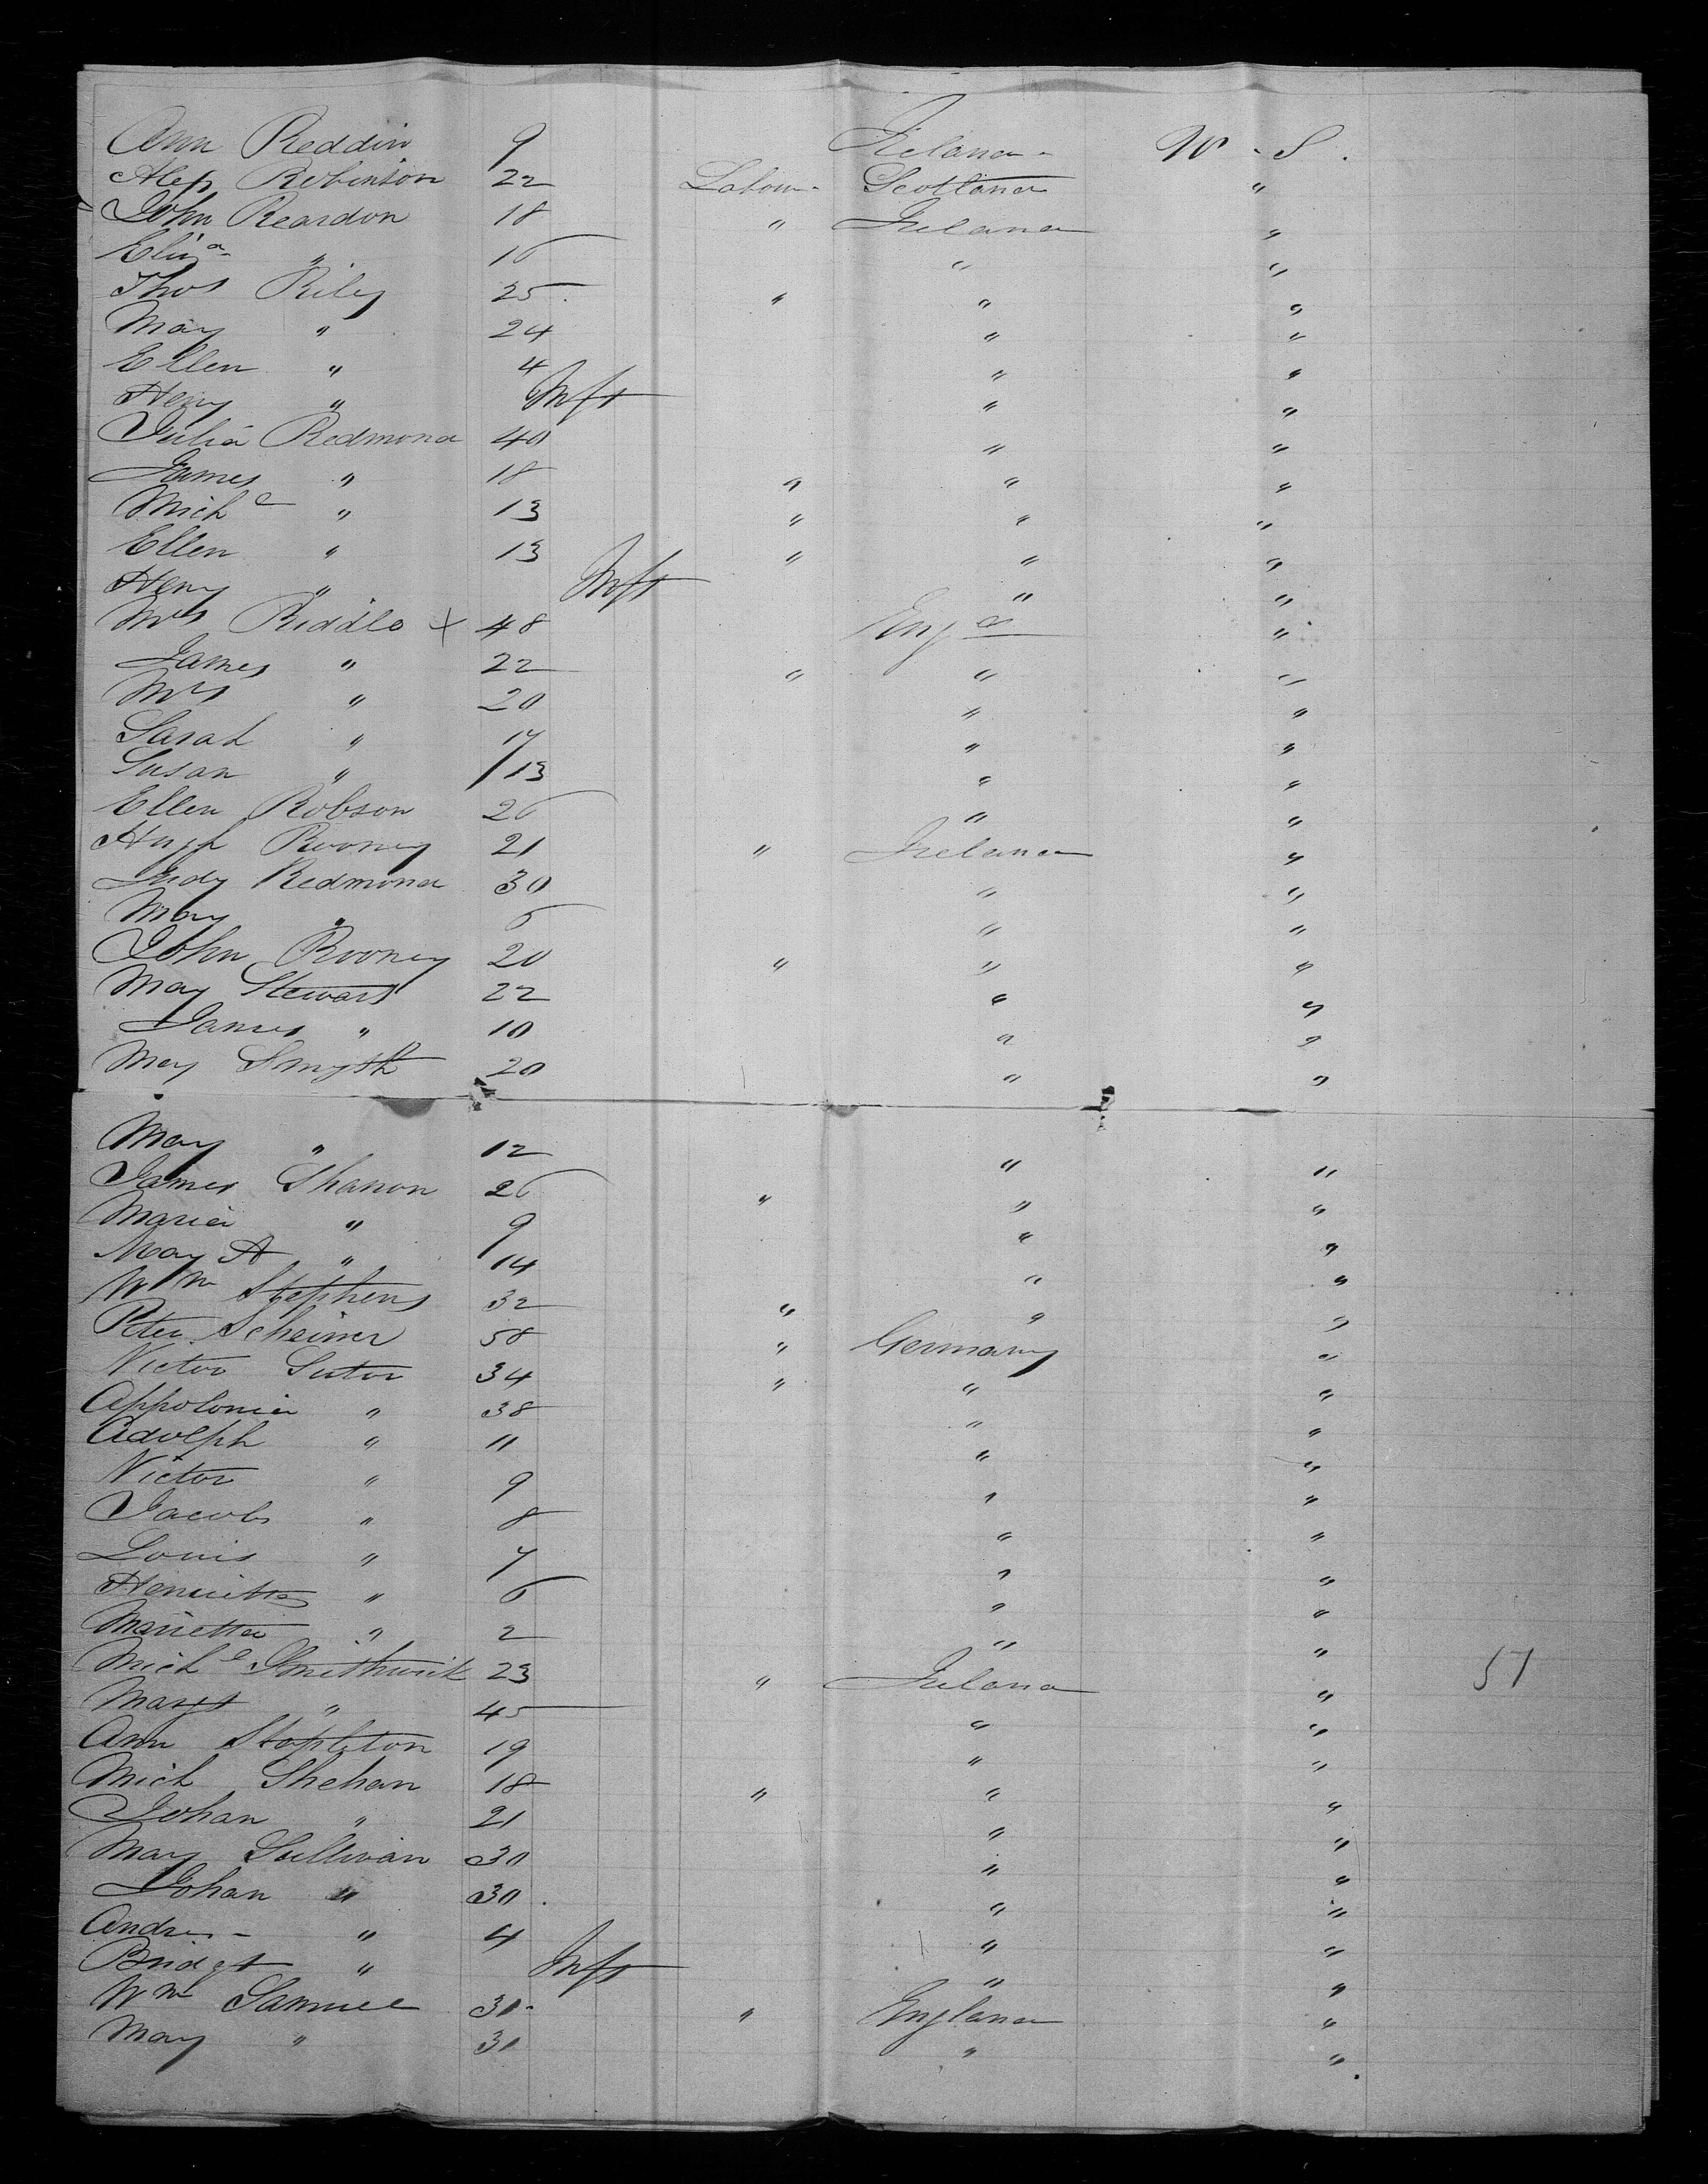 Ann Reddin 9 Ireland U S.
Alex Robinson 22 Labour Scotland "
John Reardon 18 " Ireland "
Eliza " 16 " "
Thos Riley 25 " " "
Mary " 24 " "
Ellen " 4 " "
Henry " Inft " "
Julia Redmond 40 " "
James " 18 " " "
Michl " 13 " " "
Ellen " 13 " " "
Henry " Inft " "
Mrs Riddle x 48 Engd "
James " 22 " " "
Mrs " 20 " "
Sarah " 17 " "
Susan " 13 " "
Ellen Robson 26 " "
Hugh Rooney 21 " Ireland "
Judy Redmond 30 " "
Mary " 6 " "
John Rooney 20 " " "
Mary Stewart 22 " "
James " 10 " "
Mary Smyth 20 " "
Mary " 12 " "
James Shanon 26 " " "
Maria " 9 " "
Mary A " 14 " "
Wm Stephens 32 " " "
Peter Scheimer 58 " Germany "
Victor Sutor 34 " " "
Appolonia " 38 " "
Adolph " 11 " "
Victor " 9 " "
Jacob " 8 " "
Louis " 7 " "
Henrietta " 6 " "
Marietta " 2 " "
Michl Smithwick 23 " Ireland " 51
Margt " 45 " "
Ann Stapleton 19 " "
Mich Shehan 18 " " "
Johan " 21 " "
Mary Sullivan 30 " "
Johan " 30 " "
Andrew " 4 " "
Bridgt " Inft " "
Wm Samuel 30 " England "
Mary " 30 " "